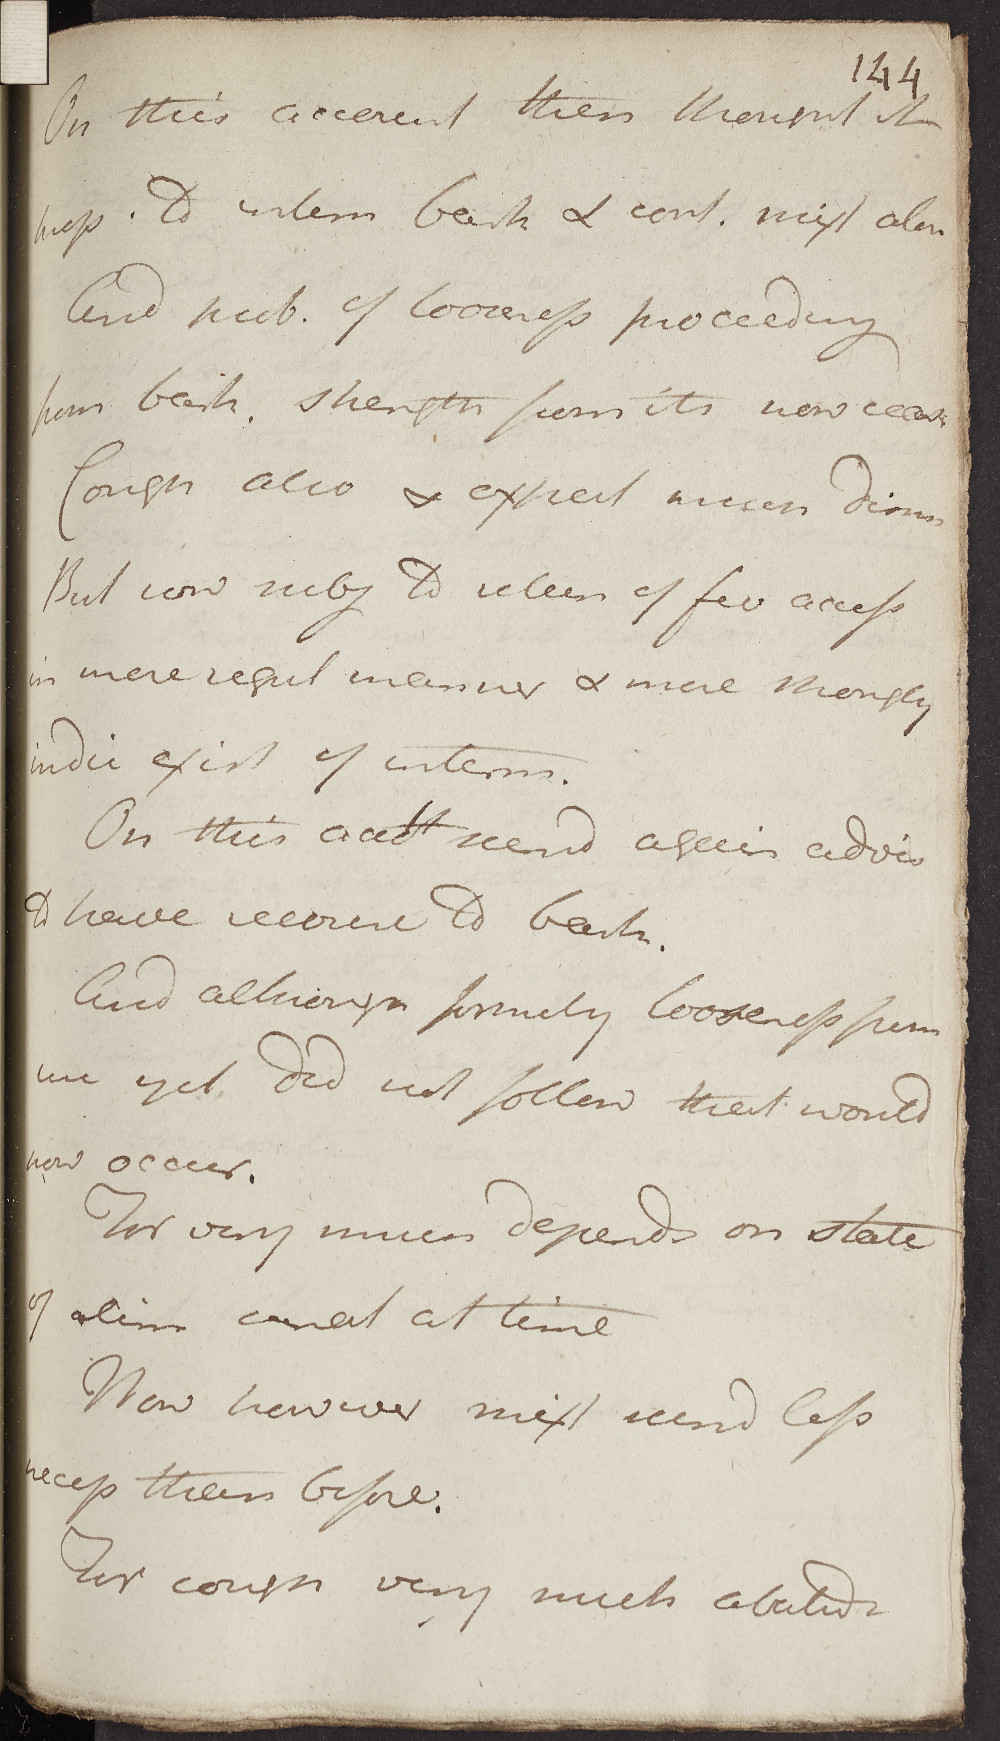 144
On this account then thought it
necess. to interm bark & cont. mixt alon
And prob. of looseness proceeding
from bark. strength from its now
Cough also & expect much dimin
But now subj to return of feb access
in more regul manner & more strongly
indic exist of interm.
On this acct seemd again advis
to have recourse to bark.
And although formerly looseness from
use yet did not follow that would
now occur.
For very much depends on state
of alim canal at time
Now however mixt seemd less
necess than before.
For cough very much abated